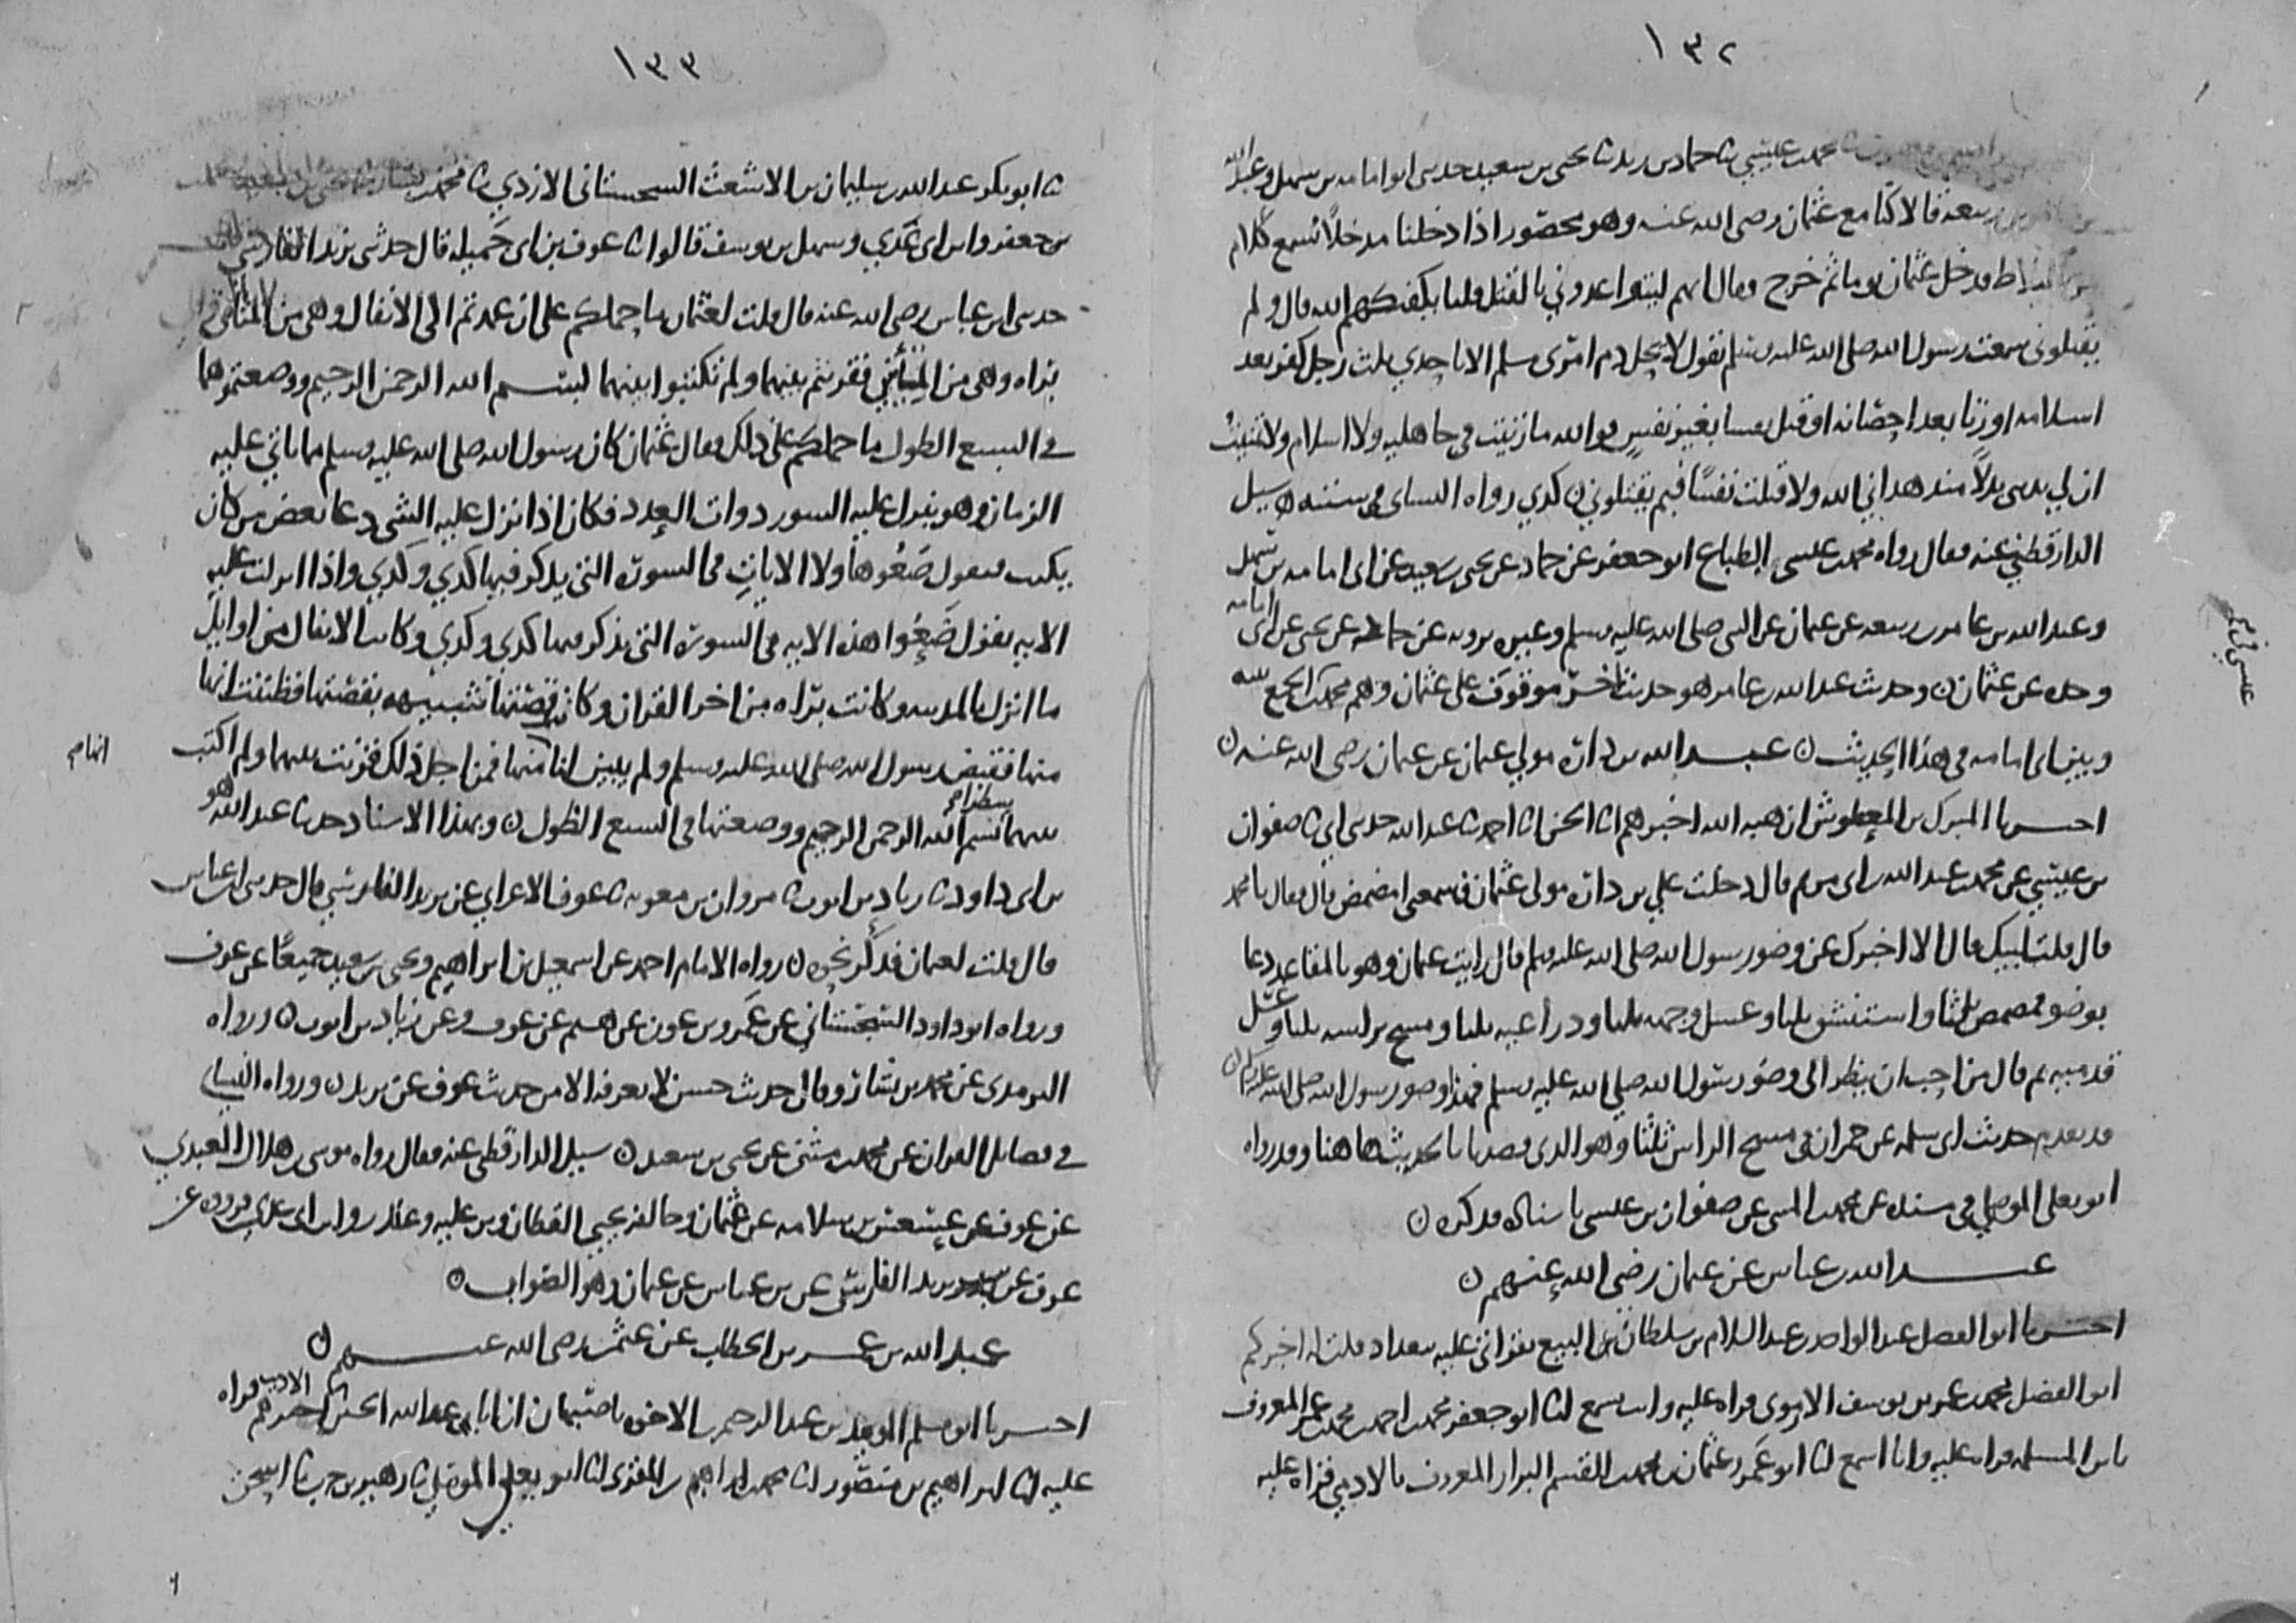 ١٣٢
محمد بن عيسى ثنا حماد بن زيد ثنا يحيى بن سعيد حدثنى ابو امامه بن سهل وعبد الله
ربيعه قالا كنا مع عثمان رضى الله عنه وهو محصور اذا دخلنا مدخلا نسمع كلام
البلاط فدخل عثمان يوما ثم خرج فقال انهم ليتواعدوني بالقتل قلنا يكفيكهم الله قال ولم
يقتلونى سمعت رسول الله صلى الله عليه وسلم يقول لا يحل دم امرى مسلم الا باحدي ثلث رجل كفر بعد
اسلامه او زنا بعد احصانه او قتل نفسا بغير نفس فوالله ما زنيت في جاهليه ولا اسلام ولا تمنيت
ان لي بدينى بدلا منذ هداني الله ولا قتلت نفسا فبم يقتلوني ن كدي رواه النساى في سننه ه سيل
الدارقطني عنه فقال رواه محمد بن عيسى الطباع ابو جعفر عن حماد عن يحيى بن سعيد عن ابى امامه بن سهل
وعبد الله بن عامر بن ربيعه عن عثمان عن النبى صلى الله عليه وسلم وغيره يرويه عن حماد عن يحيى عن ابى امامه
وحده عن عثمان ن وحديث عبد الله بن عامر هو حديث اخر موقوف على عثمان وهم محمد في الجمع بينه
وبين ابى امامه في هذا الحديث ن عبد الله بن داره مولي عثمان عن عثمان رضى الله عنه ن
اخبرنا المبرك بن المعطوش ان هبه الله اخبرهم انا الحسن انا احمد ثنا عبد الله حدثنى ابي ثنا صفوان
بن عيسي عن محمد بن عبد الله بن ابى مريم قال دخلت علي بن داره مولى عثمان فسمعنى امضمض قال فقال يا محمد
قال قلت لبيك قال الا اخبرك عن وضو رسول الله صلى الله عليه وسلم قال رايت عثمان وهو بالمقاعد دعا
بوضو فمضمض ثلثا واستنشق ثلثا وغسل وجهه ثلثا وذراعيه ثلثا ومسح براسه ثلثا وغسل
قدميه ثم قال من احب ان ينظر الى وضو رسول الله صلى الله عليه وسلم فهذا وضو رسول الله صلى الله عليه وسلم ن
قد تقدم حديث ابى سلمه عن حمران في مسح الراس ثلثا وهو الذى قصدنا بالحديث هاهنا وقد رواه
ابو يعلى الموصلي في مسنده عن محمد بن المثنى عن صفوان بن عيسى باسناده فذكره ن
عبد الله بن عباس عن عثمان رضي الله عنهم ن
اخبرنا ابو الفضل عبد الواحد بن عبد السلام بن سلطان بن البيع بقراتى عليه ببغداد قلت له اخبركم
ابو الفضل محمد بن عمر بن يوسف الارموى قراه عليه وانت تسمع انا ابو جعفر محمد بن احمد بن محمد بن عمر المعروف
بابن المسلمه قراه عليه وانا اسمع انا ابو عمرو عثمان بن محمد بن القسم البزار المعروف بالادمي قراه عليه
١٣٣
ثنا ابو بكر عبد الله بن سليمان بن الاشعث السجستانى الازدي ثنا محمد بن بشار ثنا يحيى بن سعيد ومحمد
بن جعفر وابن ابى عدي وسهل بن يوسف قالوا ثنا عوف بن ابى جميله قال حدثنى يزيد الفارسي
حدثنى ابن عباس رضى الله عنه قال قلت لعثمان ما حملكم على ان عمدتم الى الانفال وهى من المثاني والى
براه وهى من المئين فقرنتم بينهما ولم تكتبوا بينهما بسم الله الرحمن الرحيم ووضعتموها
في السبع الطول ما حملكم على ذلك فقال عثمان كان رسول الله صلى الله عليه وسلم مما ياتي عليه
الزمان وهو ينزل عليه السور ذوات العدد فكان اذا نزل عليه الشي دعا بعض من كان
يكتب فيقول ضعوا هاولا الايات في السوره التي يذكر فيها كدي وكدي واذا انزلت عليه
الايه يقول ضعوا هذه الايه في السوره التي يذكر فيها كدي وكدي وكانت الانفال من اوايل
ما انزل بالمدينه وكانت براه من اخر القران وكانت قصتها شبيهه بقصتها فظننت انها
منها فقبض رسول الله صلى الله عليه وسلم ولم يبين لنا انها منها فمن اجل ذلك قرنت بينهما ولم اكتب
بينهما سطر بسم الله الرحمن الرحيم ووضعتها في السبع الطول ن وبهذا الاسناد حدثنا عبد الله هو
بن ابى داود ثنا زياد بن ايوب ثنا مروان بن معويه ثنا عوف الاعرابي عن يزيد الفارسي قال حدثنى ابن عباس
قال قلت لعثمان فذكر نحوه ن رواه الامام احمد عن اسمعيل بن ابراهيم ويحيى بن سعيد جميعا عن عوف
ورواه ابو داود السجستاني عن عمرو بن عون عن هشيم عن عوف وعن زياد بن ايوب ن ورواه
الترمدى عن محمد بن بشار وقال حديث حسن لا نعرفه الا من حديث عوف عن يزيد ن ورواه النساى
في فضايل القران عن محمد بن مثنى عن يحيى بن سعيد ن سيل الدارقطنى عنه فقال رواه موسى بن هلال العبدي
عن عوف عن عيسعس بن سلامه عن عثمان وخالفه يحيي القطان وبن عليه وغندر وابن ابى عدى فرووه عن
عوف عن يزيد الفارسى عن بن عباس عن عثمان وهو الصواب ن
عبد الله بن عمر بن الخطاب عن عثمن رضى الله عنهم ن
اخبرنا ابو مسلم المويد بن عبد الرحيم بن الاخوه باصبهان ان ابا عبد الله الحسين الاديب اخبرهم قراه
عليه انا ابراهيم بن منصور انا محمد بن ابراهيم بن المقرى انا ابو يعلي الموصلي ثنا زهير بن حرب ثنا اسحق